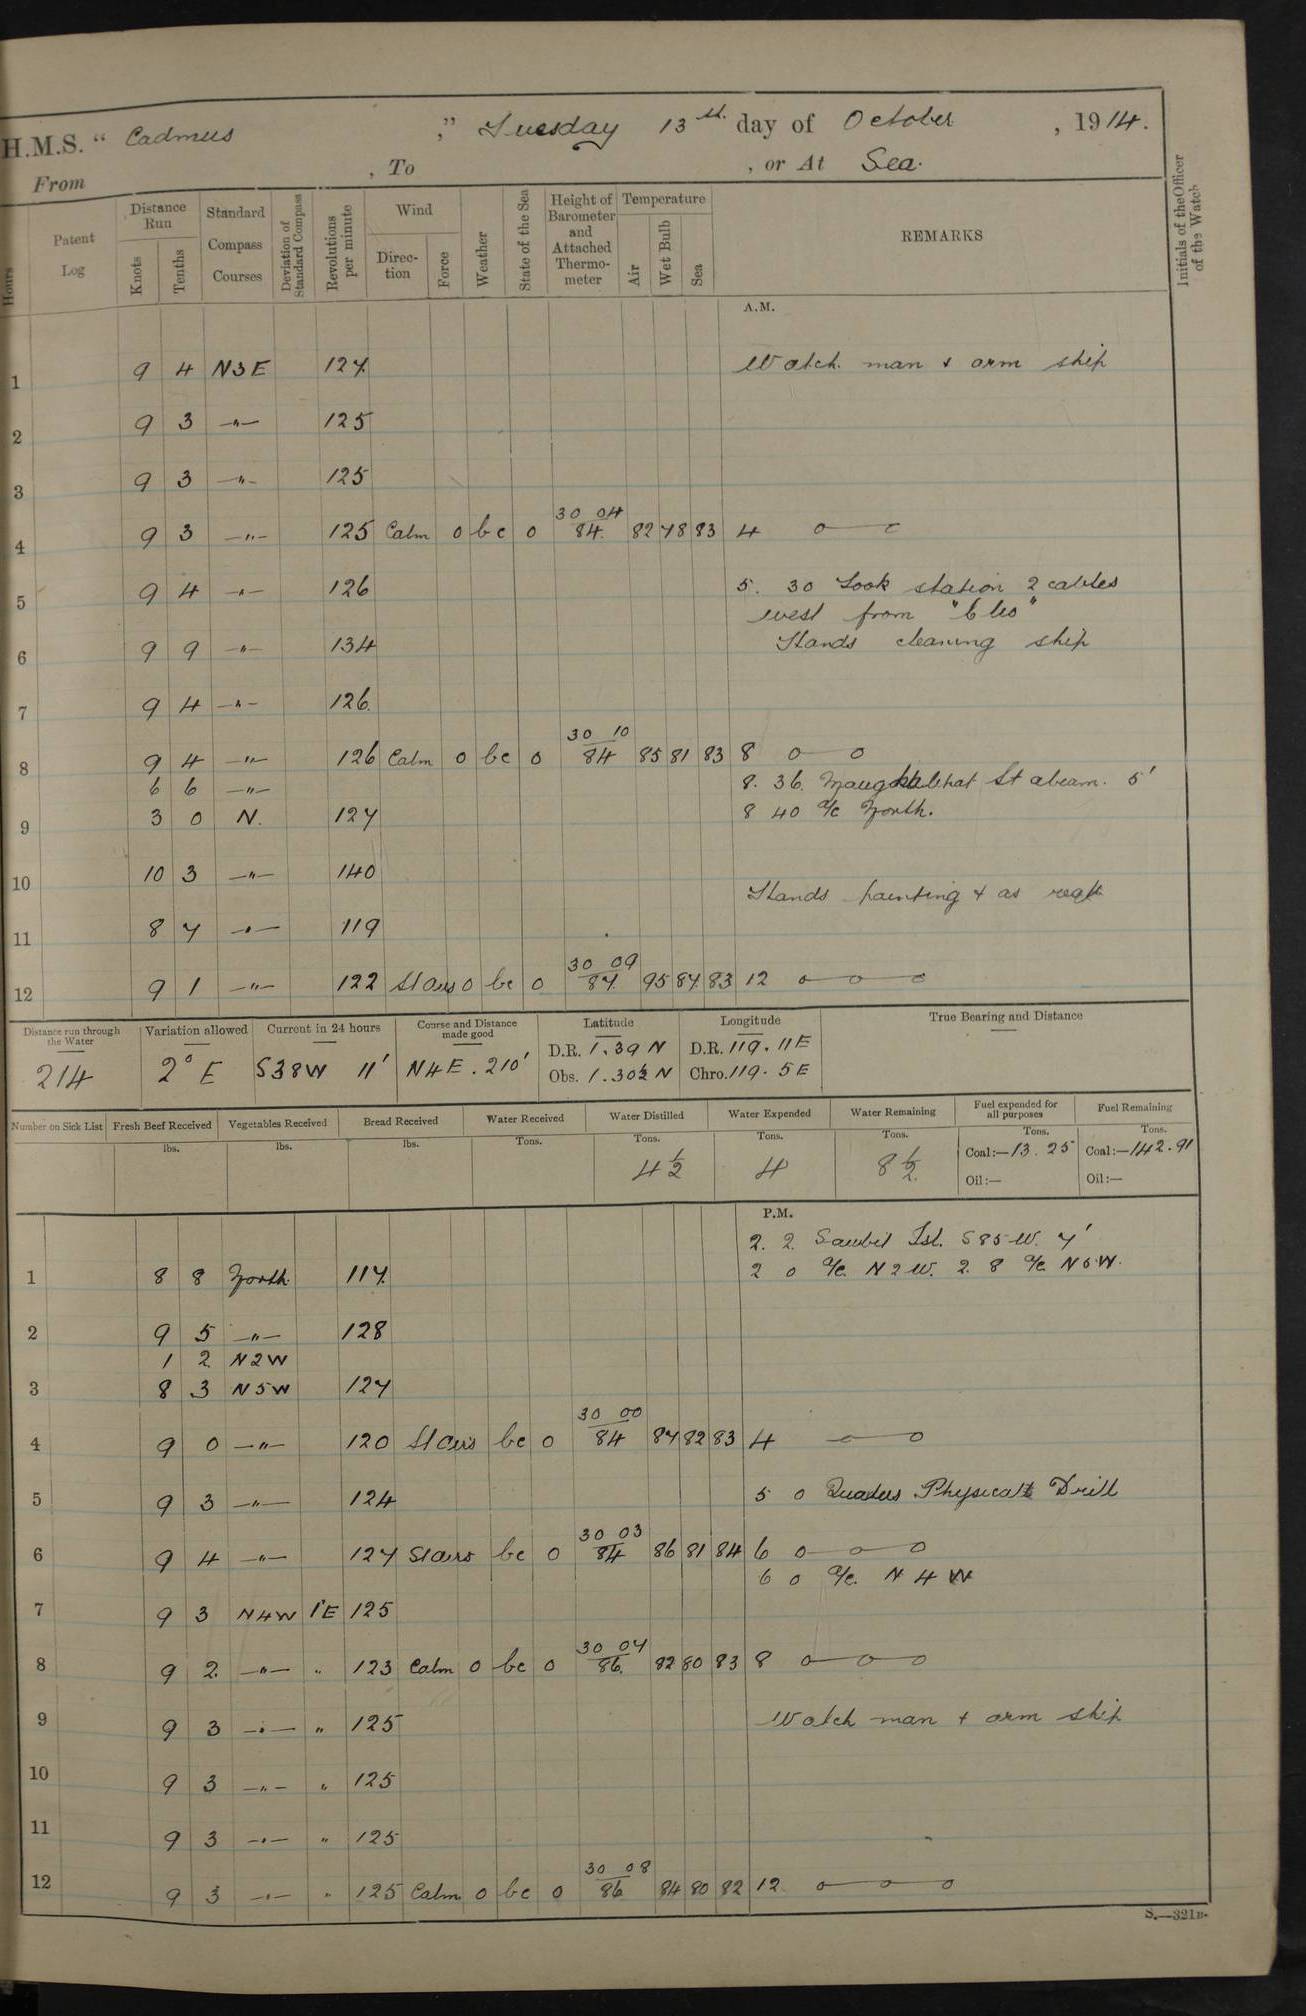 H.M.S. " Cadmus ," Tuesday 13th day of October , 1914.
From , To , or At Sea.
Hours
Patent Log
Distance Run
Knots
Tenths
Standard Compass Courses
Deviation of Standard Compass
Revolutions per minute
Wind
Direction
Force
Weather
State of the Sea
Height of Barometer and Attached Thermometer
Temperature
Air
Wet Bulb
Sea
REMARKS
Initials of the Officer of the Watch
A.M.
1 9 4 N3E 127 Watch man & arm ship
2 9 3 —"— 125
3 9 3 —"— 125
30 04
4 9 3 —"— 125 Calm 0 bc 0 84 82 78 83 4 o—c
5 9 4 —"— 126 5. 30 Took station 2 cables
west from "Clio"
6 9 9 —"— 134 Hands cleaning ship
7 9 4 —"— 126
30 10
8 9 4 —"— 126 Calm 0 bc 0 84 85 81 83 8 o—o
6 6 —"— 8. 36. St abeam. 5'
9 3 0 N. 127 8 40 a/c North.
10 10 3 —"— 140
Hands painting & as
11 8 7 —"— 119
30 09
12 9 1 —"— 122 Stairs 0 bc 0 87 95 87 83 12 o—o—o
Distance run through the Water
214
Variation allowed
2° E
Current in 24 hours
S38W 11'
Course and Distance made good
N4E. 210'
Latitude
D.R. 1.39 N
Obs. 1.30½ N
Longitude
D.R. 119. 11 E
Chro. 119. 5 E
True Bearing and Distance
Number on Sick List
Fresh Beef Received
lbs.
Vegetables Received
lbs.
Bread Received
lbs.
Water Received
Tons.
Water Distilled
Tons.
4 ½
Water Expended
Tons.
4
Water Remaining
Tons.
8 ½
Fuel expended for all purposes
Tons.
Coal:—13. 25
Oil:—
Fuel Remaining
Tons.
Coal:—142.91
Oil:—
P.M.
2. 2. Isl. S85W. 7'
1 8 8 North 117 2 0 a/c N2W. 2. 8 a/c N5W.
2 9 5 —"— 128
1 2 N2W
3 8 3 N5W 127
30 00
4 9 0 —"— 120 Stairs bc 0 84 87 82 83 4 —o
5 9 3 —"— 124 5 0 Quarters Physical Drill
30 03
6 9 4 —"— 127 Stairs bc 0 84 86 81 84 6 o—o—o
6 0 a/c. N4W
7 9 3 N4W 1°E 125
30 07
8 9 2 —"— " 123 Calm 0 bc 0 86 82 80 83 8 o—o—o
9 9 3 —"— " 125 Watch man & arm ship
10 9 3 —"— " 125
11 9 3 —"— " 125
30 08
12 9 3 —"— " 125 Calm 0 bc 0 86 84 80 82 12 o—o—o
S.—321B.